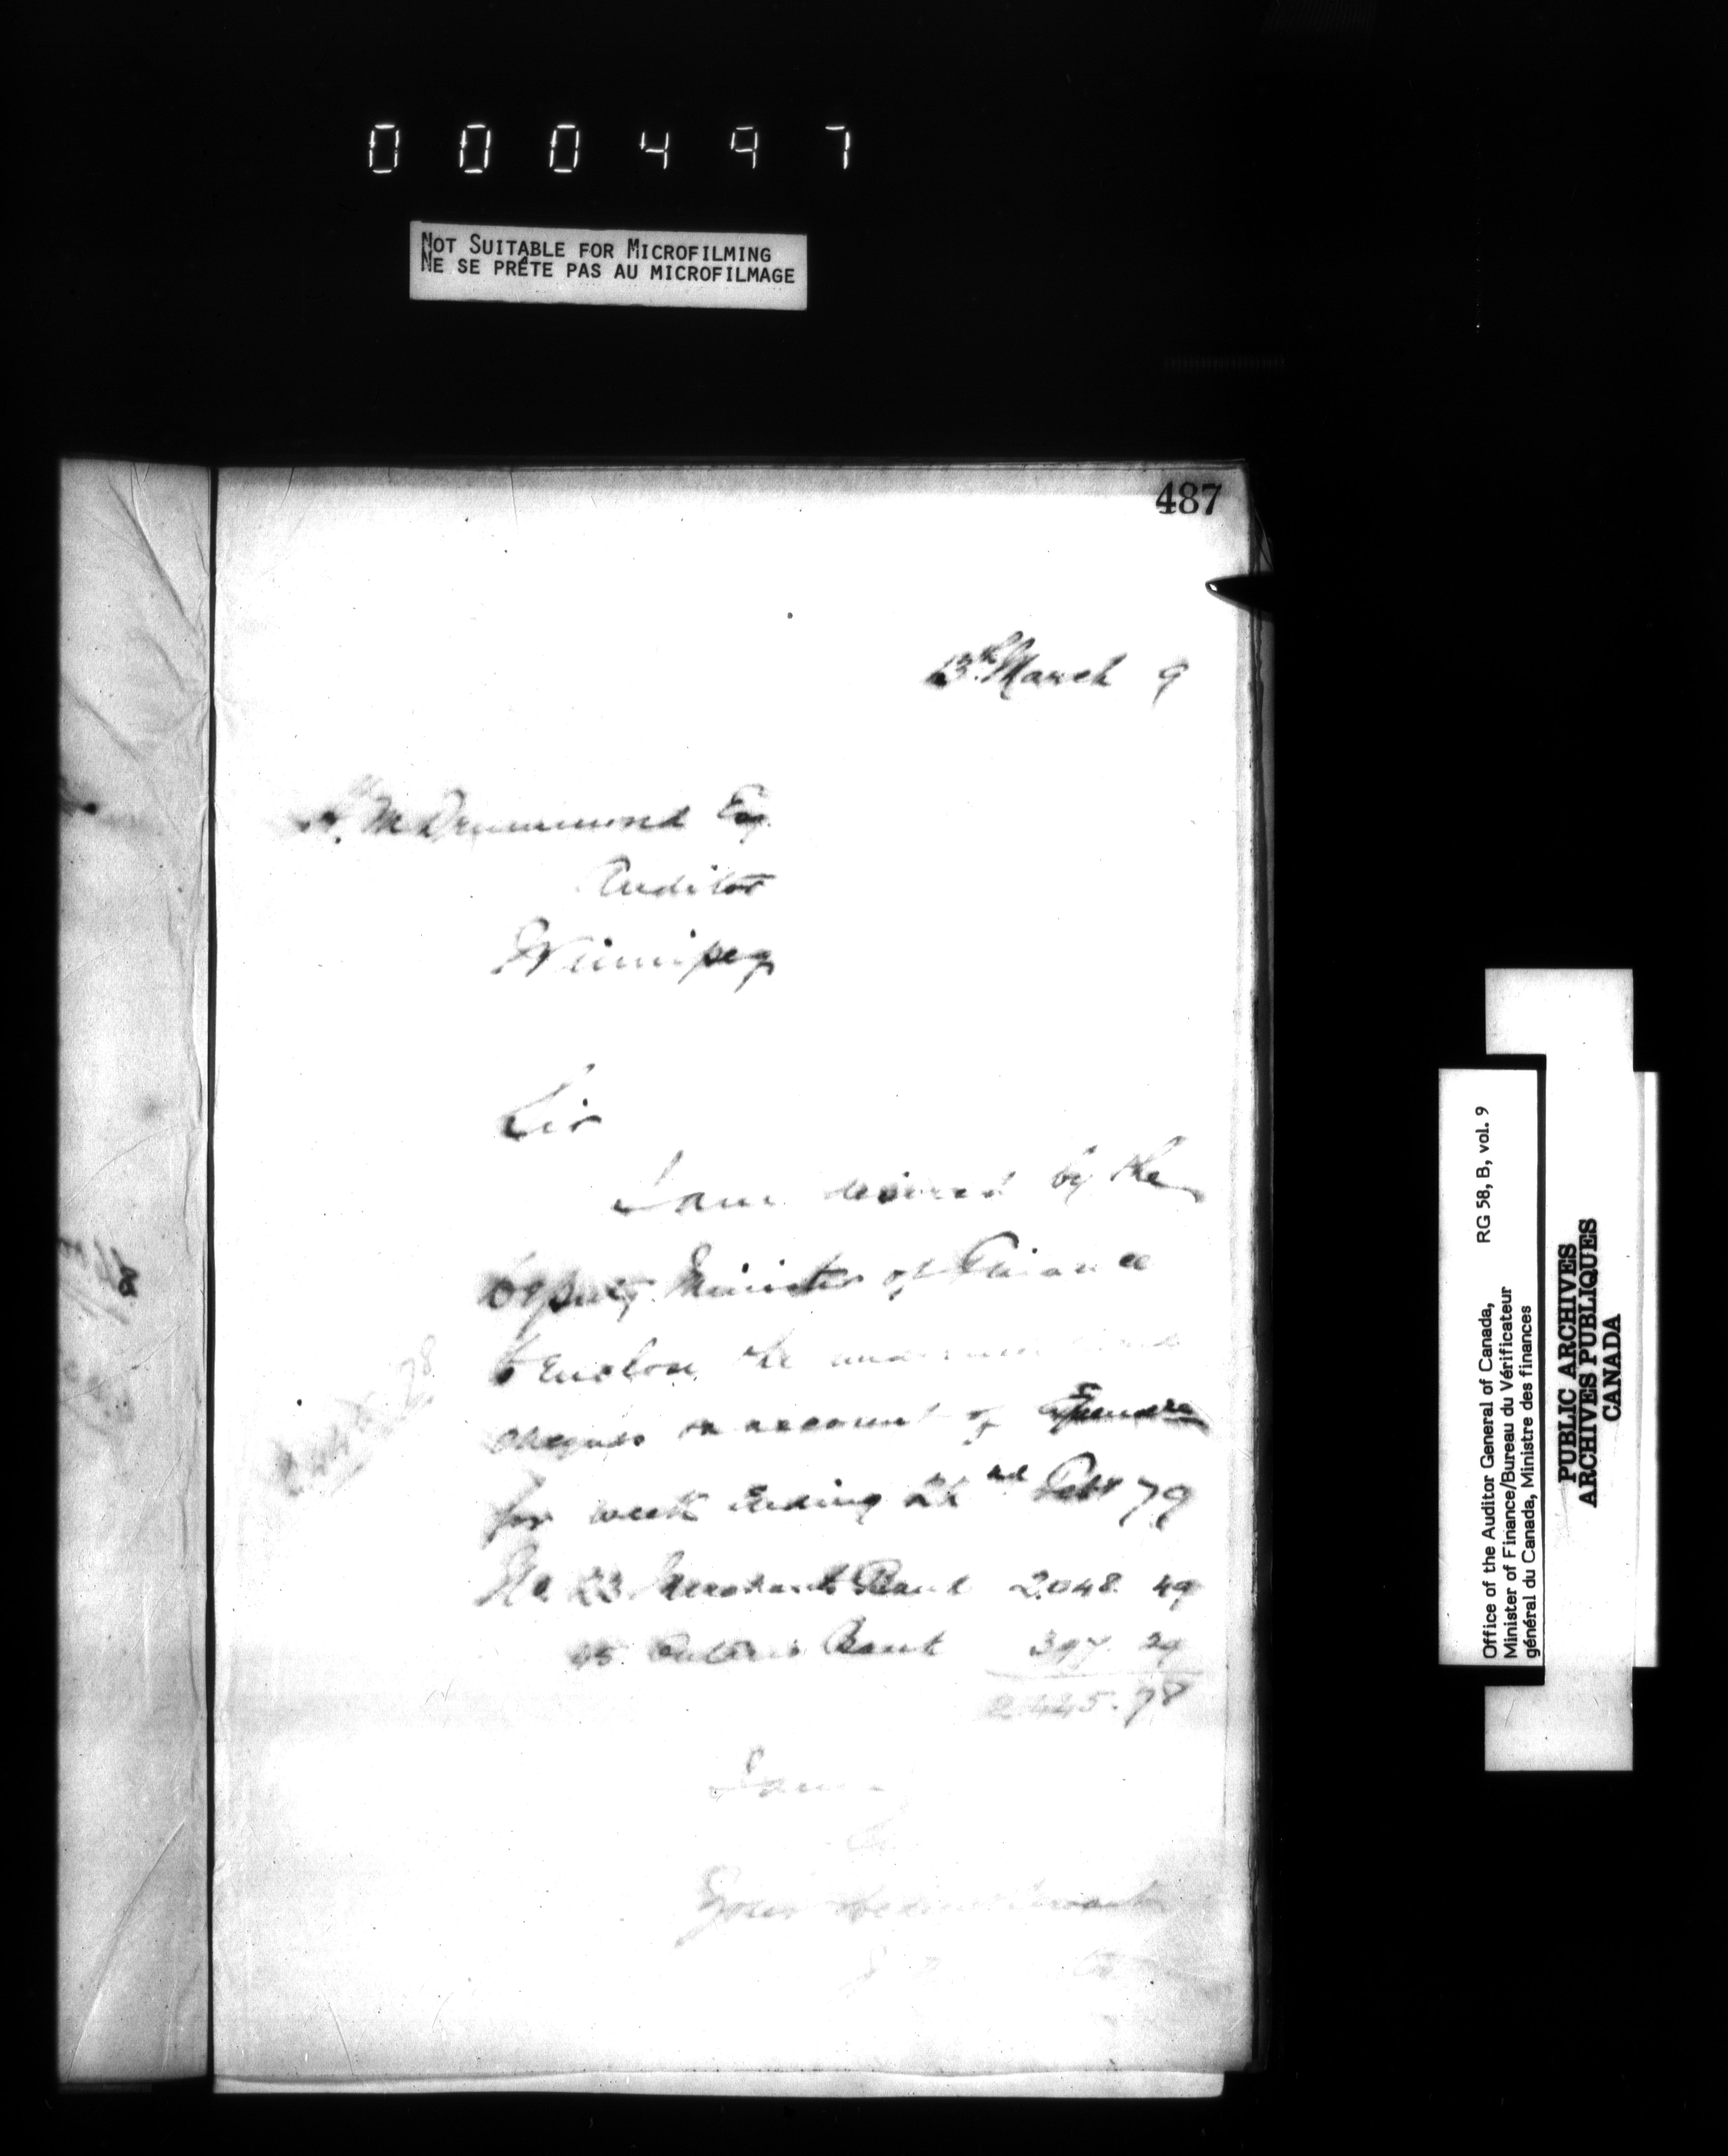 000497
NOT SUITABLE FOR MICROFILMING
NE SE PRÊTE PAS AU MICROFILMAGE
487
13th March 9
H. M Drummond Esq.
Auditor
Winnipeg
Sir
I am desired by the
Deputy Minister of Finance
to enclose the
cheques on account of
for week ending 22nd Feby 79
No. 23 Merchants Bank 2,048. 49
45 Ontario Bank 397. 29
2,445. 78
I am
Your Servant
Office of the Auditor General of Canada, RG 58, B, vol. 9
Minister of Finance/Bureau du Vérificateur
général du Canada, Ministre des finances
PUBLIC ARCHIVES
ARCHIVES PUBLIQUES
CANADA